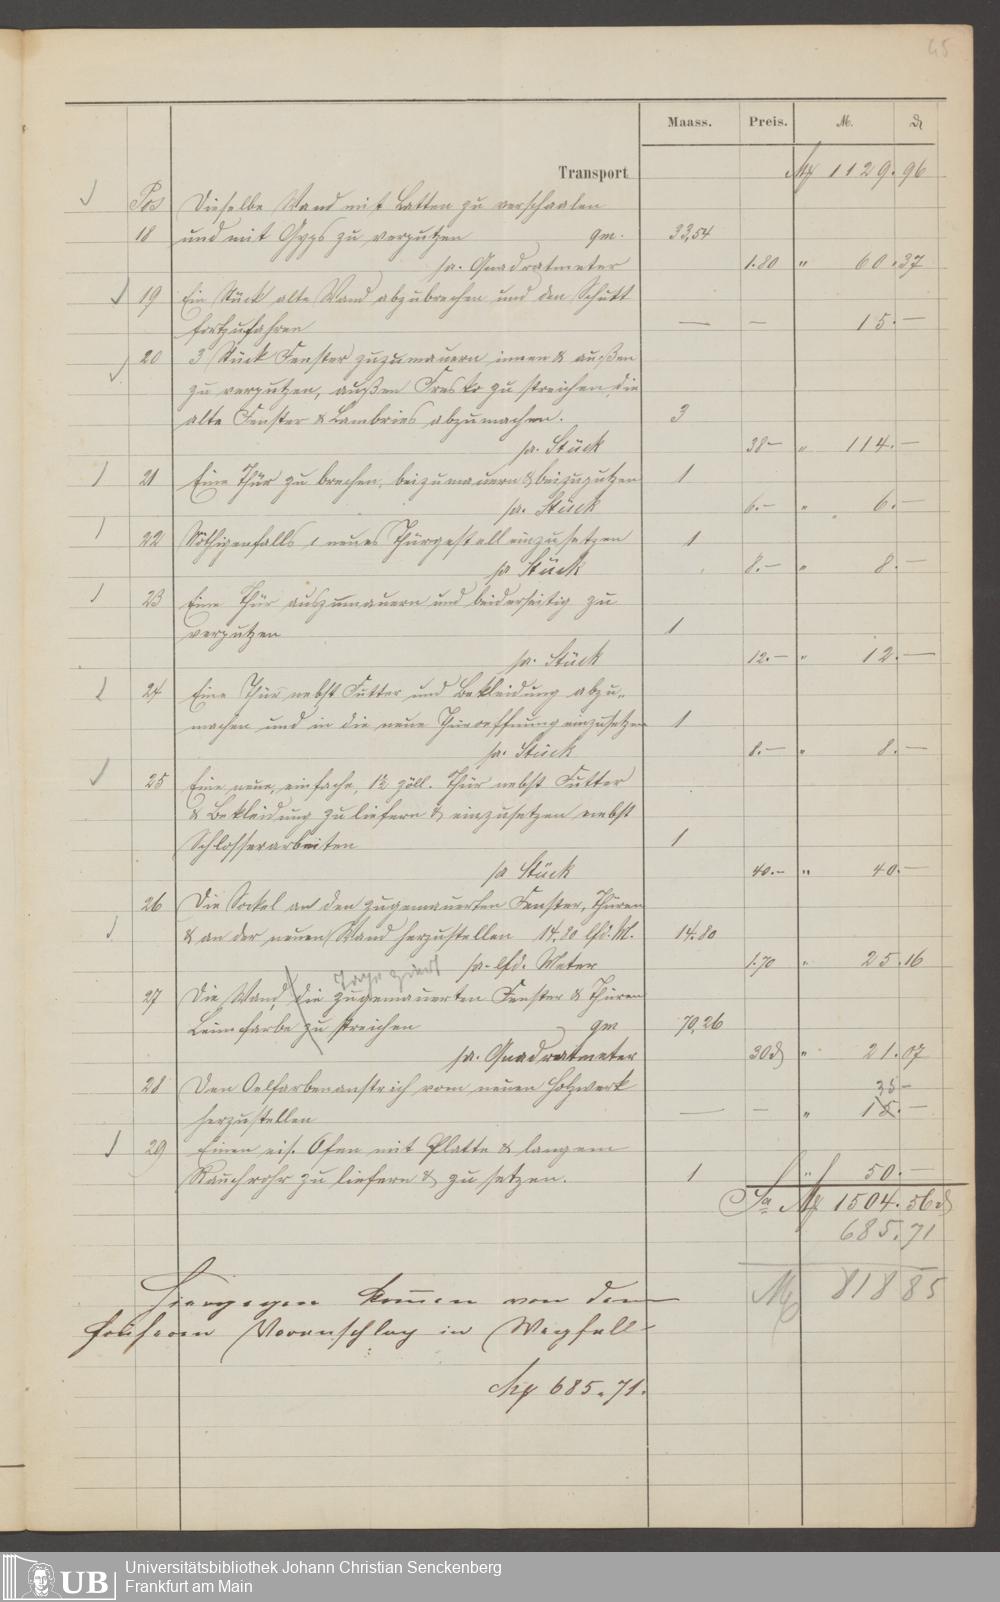 45
Maass. Preis. M. ₰
Transport M 1129.96
Pos Dieselbe Wand mit Latten zu verschaalen
18 und mit Gyps zu verputzen qm. 33,54
pr. Quadratmeter 1.80 " 60.37
19 Ein Stück alte Wand abzubrechen und den Schutt
fortzufahren — — 15.—
20 3 Stück Fenster zuzumauern innen & außen
zu verputzen, außen Fresko zu streichen, die
alte Fenster & Lambries abzumachen. 3
pr. Stück 38— " 114.—
21 Eine Thür zu brechen, beizumauern & beizuputzen 1
pr. Stück 6.— " 6.—
22 Nöthigenfalls 1 neues Thürgestell einzusetzen 1
pr Stück 8.— " 8.—
23 Eine Thür auszumauern und beiderseitig zu
verputzen 1
pr. Stück 12.— " 12.—
24 Eine Thür nebst Futter und Bekleidung abzu-
machen und in die neue Thüroeffnung einzusetzen 1
pr. Stück 8.— " 8.—
25 Eine neue, einfache, 1½ zöll. Thür nebst Futter
& Bekleidung zu liefern & einzusetzen nebst
Schlosserarbeiten 1
pr Stück 40.— " 40.—
26 Die Sockel an den zugemauerten Fenster, Thüren
& an der neuen Wand herzustellen 14,80 lfd. M. 14.80
pr. lfd. Meter 1.70 " 25.16
27 Die Wand, die zugemauerten Fenster & Thüren
Leimfarbe zu streichen qm 70,26
pr. Quadratmeter 30₰ " 21.07
28 Den Oelfarbenanstrich vom neuen Holzwerk 35—
herzustellen — — " 15.—
29 Einen eis. Ofen mit Platte & langem
Rauchrohr zu liefern & zu setzen. 1 " 50.—
Sa M 1504.56₰
685.71
M 818 85
Hiergegen kommen von dem
früheren Voranschlag in Wegfall
M 685.71.
UB Universitätsbibliothek Johann Christian Senckenberg
Frankfurt am Main